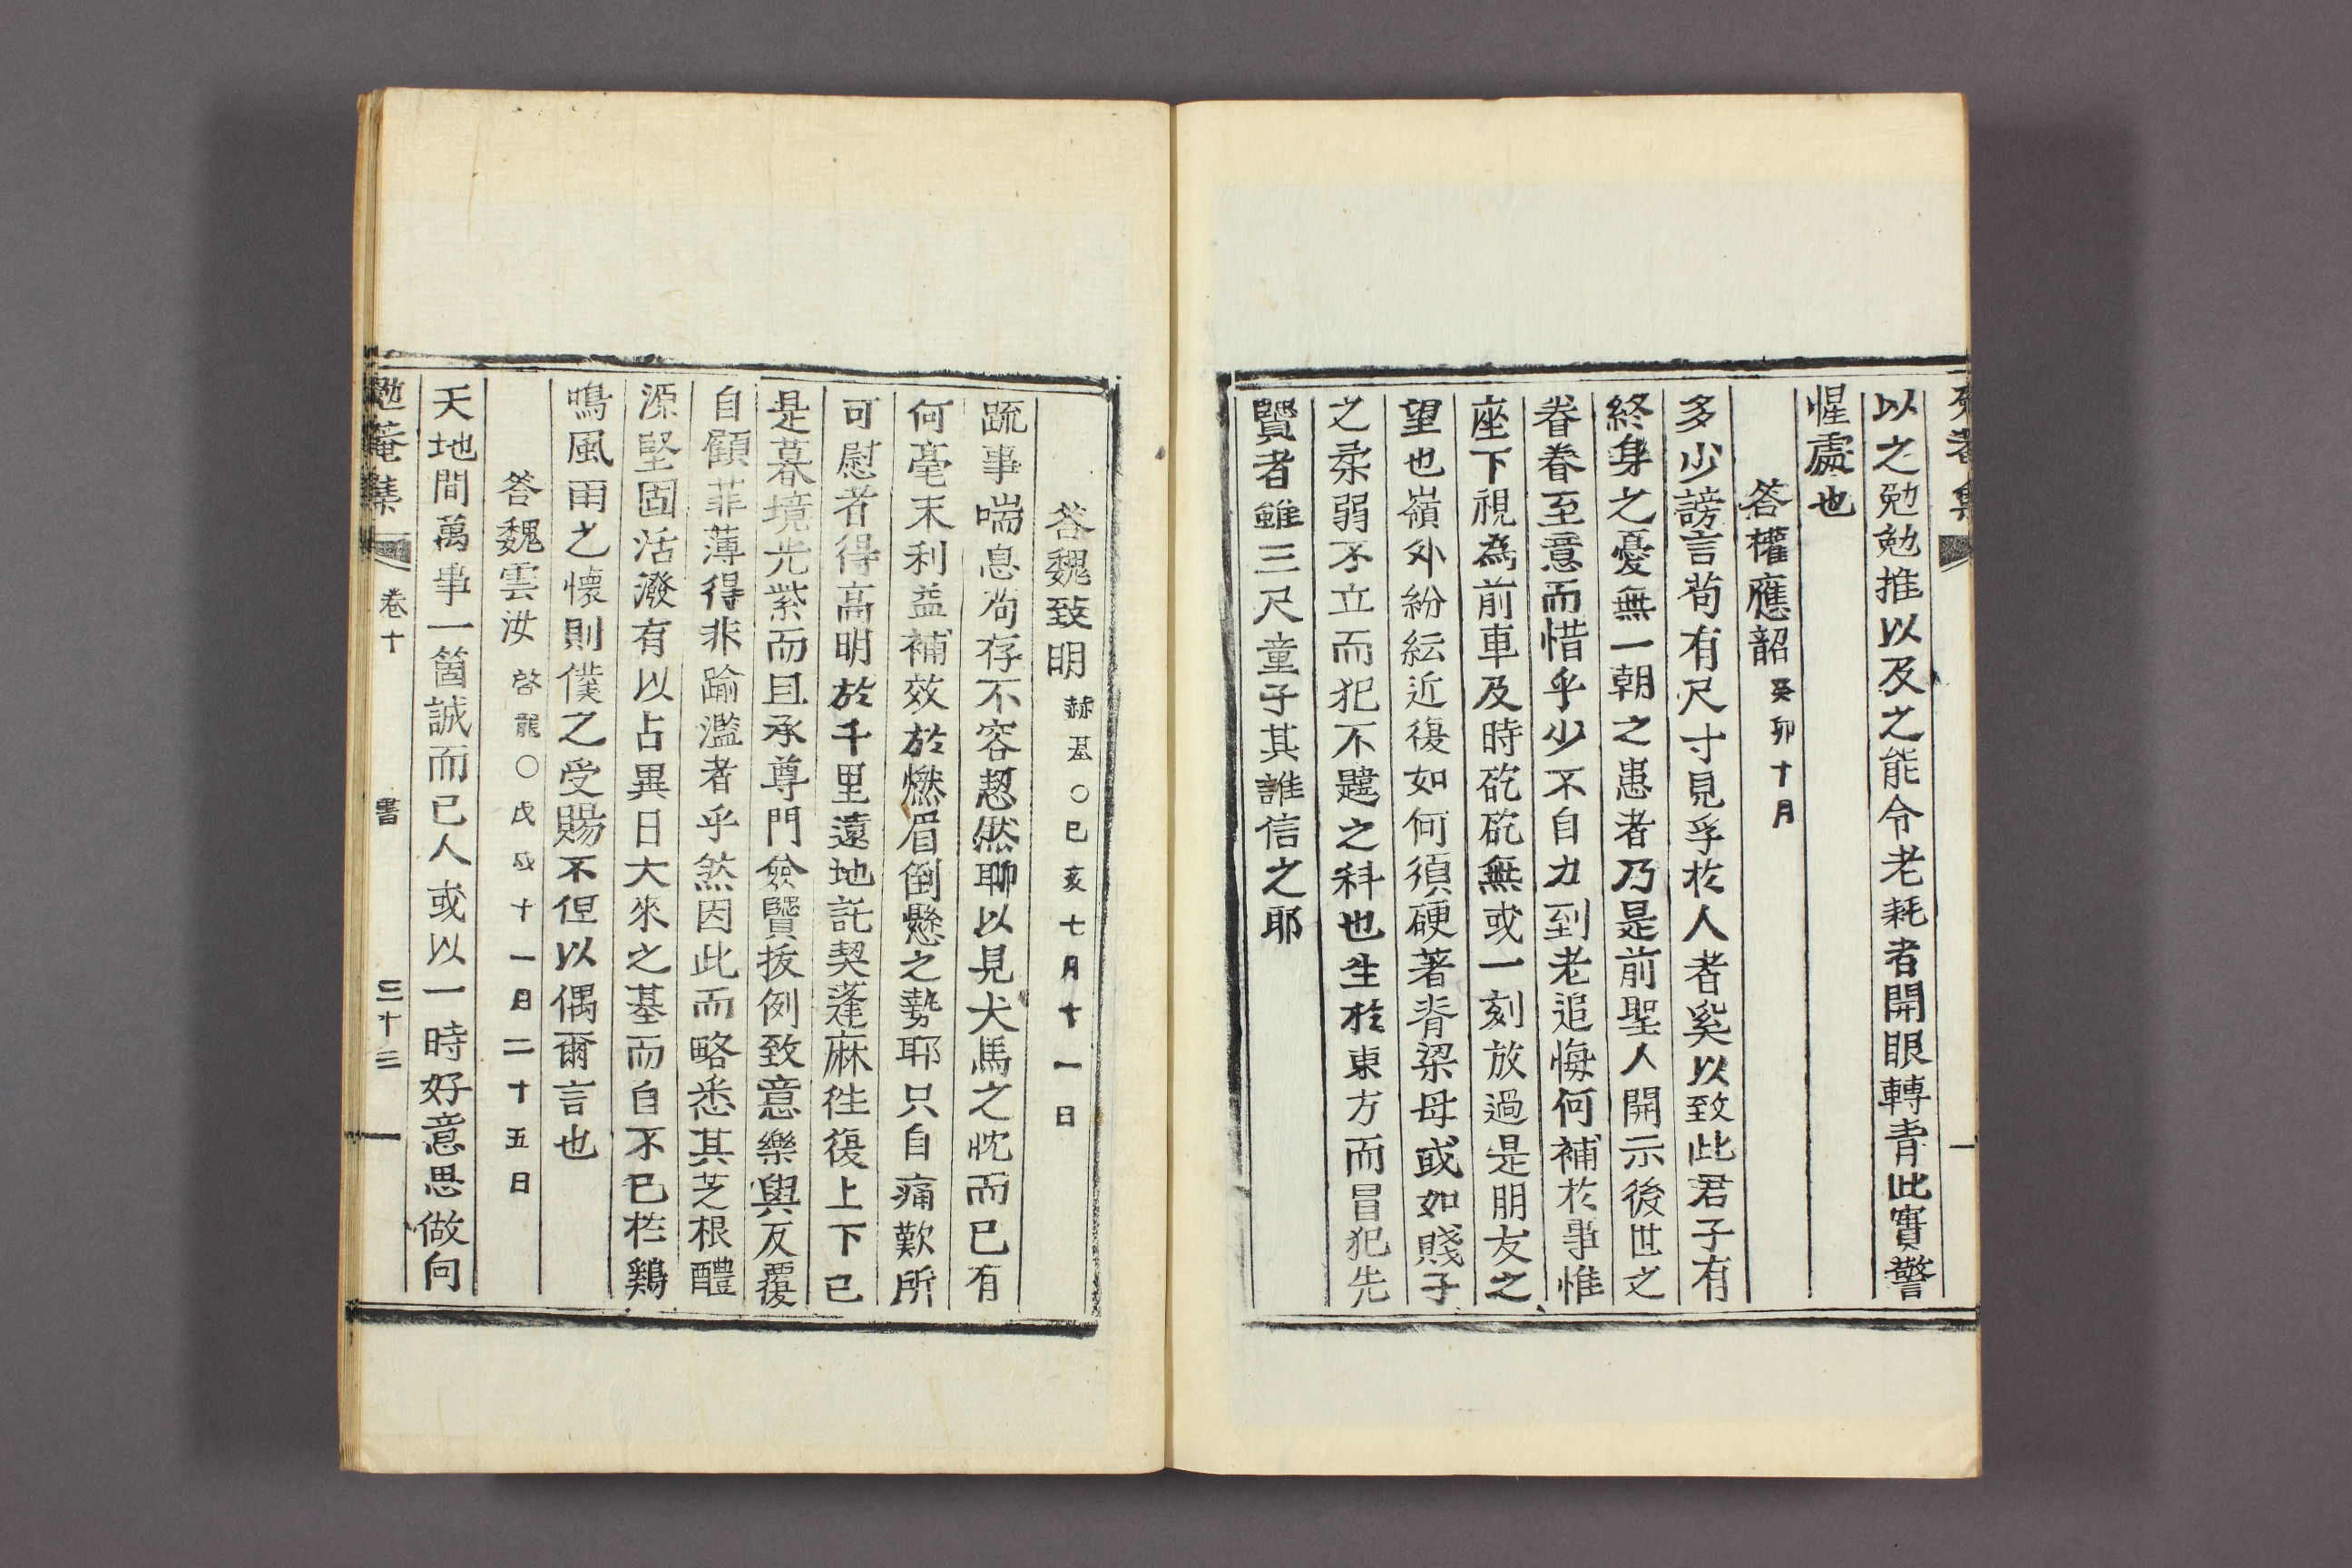 以之勉勉推以及之能令老耗者開眼轉青此實警
惺處也
答權應韶 癸卯十月
多少謗言苟有尺寸見孚於人者奚以致此君子有
終身之憂無一朝之患者乃是前聖人開示後世之
眷眷至意而惜乎少不自力到老追悔何補於事惟
座下視為前車及時矻矻無或一刻放過是朋友之
望也嶺外紛紜近復如何須硬著脊梁毋或如賤子
之柔弱不立而犯不韙之科也生於東方而冒犯先
賢者雖三尺童子其誰信之耶
答魏致明 赫基○已亥七月十一日
䟽事喘息尚存不容恝然聊以見犬馬之忱而已有
何毫末利益補效於燃眉倒懸之勢耶只自痛歎所
可慰者得高明於千里遠地託契蓬麻徃復上下已
是暮境光紫而且承尊門僉賢拔例致意樂與反覆
自顧菲薄得非踰濫者乎然因此而略悉其芝根醴
源堅固活潑有以占異日大來之基而自不已於鷄
鳴風雨之懷則僕之受賜不但以偶爾言也
答魏雲汝 啓龍○戊戌十一月二十五日
天地間萬事一箇誠而已人或以一時好意思做向
勉菴集 卷十 書 三十三